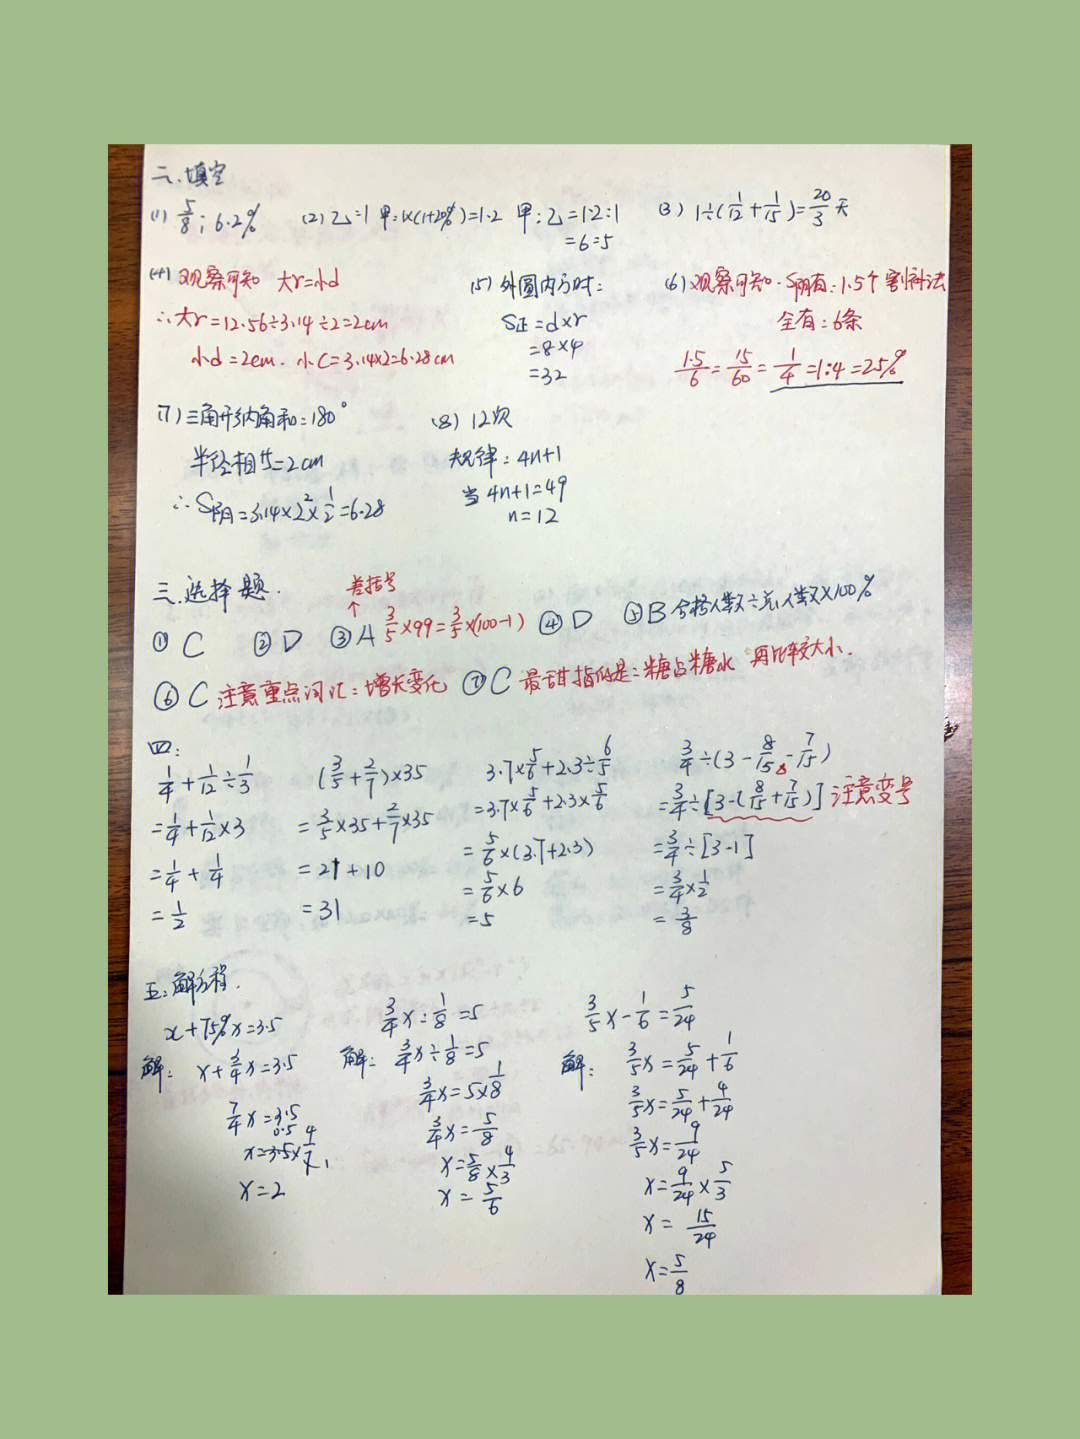 二.填空
(1) 5/8; 6.2%
(2) 乙=1 甲=1×(1+20%)=1.2 甲:乙=1.2:1
=6:5
(3) 1÷(1/12+1/15)=20/3天
(4) 观察可知 大r=小d
∴大r=12.56÷3.14÷2=2cm
小d=2cm. 小C=3.14×2=6.28cm
(5) 外圆内方时:
S正=d×r
=8×4
=32
(6) 观察可知.S阴有:1.5个 割补法
全有:6条
1.5/6=15/60=1/4=1:4=25%
(7) 三角形内角和=180°
半径相等=2cm
∴S阴=3.14×2²×1/2=6.28
(8) 12次
规律:4n+1
当4n+1=49
n=12
三.选择题.
差括号
① C ② D ③ A 3/5×99=3/5×(100-1) ④ D ⑤ B 合格人数÷总人数×100%
⑥ C 注意重点词汇:增长变化 ⑦ C 最甜指的是:糖占糖水 再比较大小.
四:
1/4+1/12÷1/3
=1/4+1/12×3
=1/4+1/4
=1/2
(3/5+2/7)×35
=3/5×35+2/7×35
=21+10
=31
3.7×5/6+2.3÷6/5
=3.7×5/6+2.3×5/6
=5/6×(3.7+2.3)
=5/6×6
=5
3/4÷(3-8/15-7/15)
=3/4÷[3-(8/15+7/15)] 注意变号
=3/4÷[3-1]
=3/4×1/2
=3/8
五:解方程.
x+75%x=3.5
解: x+3/4x=3.5
7/4x=3.5
0.5
x=3.5×4/7 1
x=2
3/4x:1/8=5
解: 3/4x÷1/8=5
3/4x=5×1/8
3/4x=5/8
x=5/8×4/3
x=5/6
3/5x-1/6=5/24
解: 3/5x=5/24+1/6
3/5x=5/24+4/24
3/5x=9/24
x=9/24×5/3
x=15/24
x=5/8